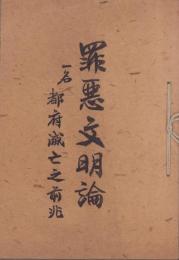 罪悪文明論
一名
都府滅亡之前兆